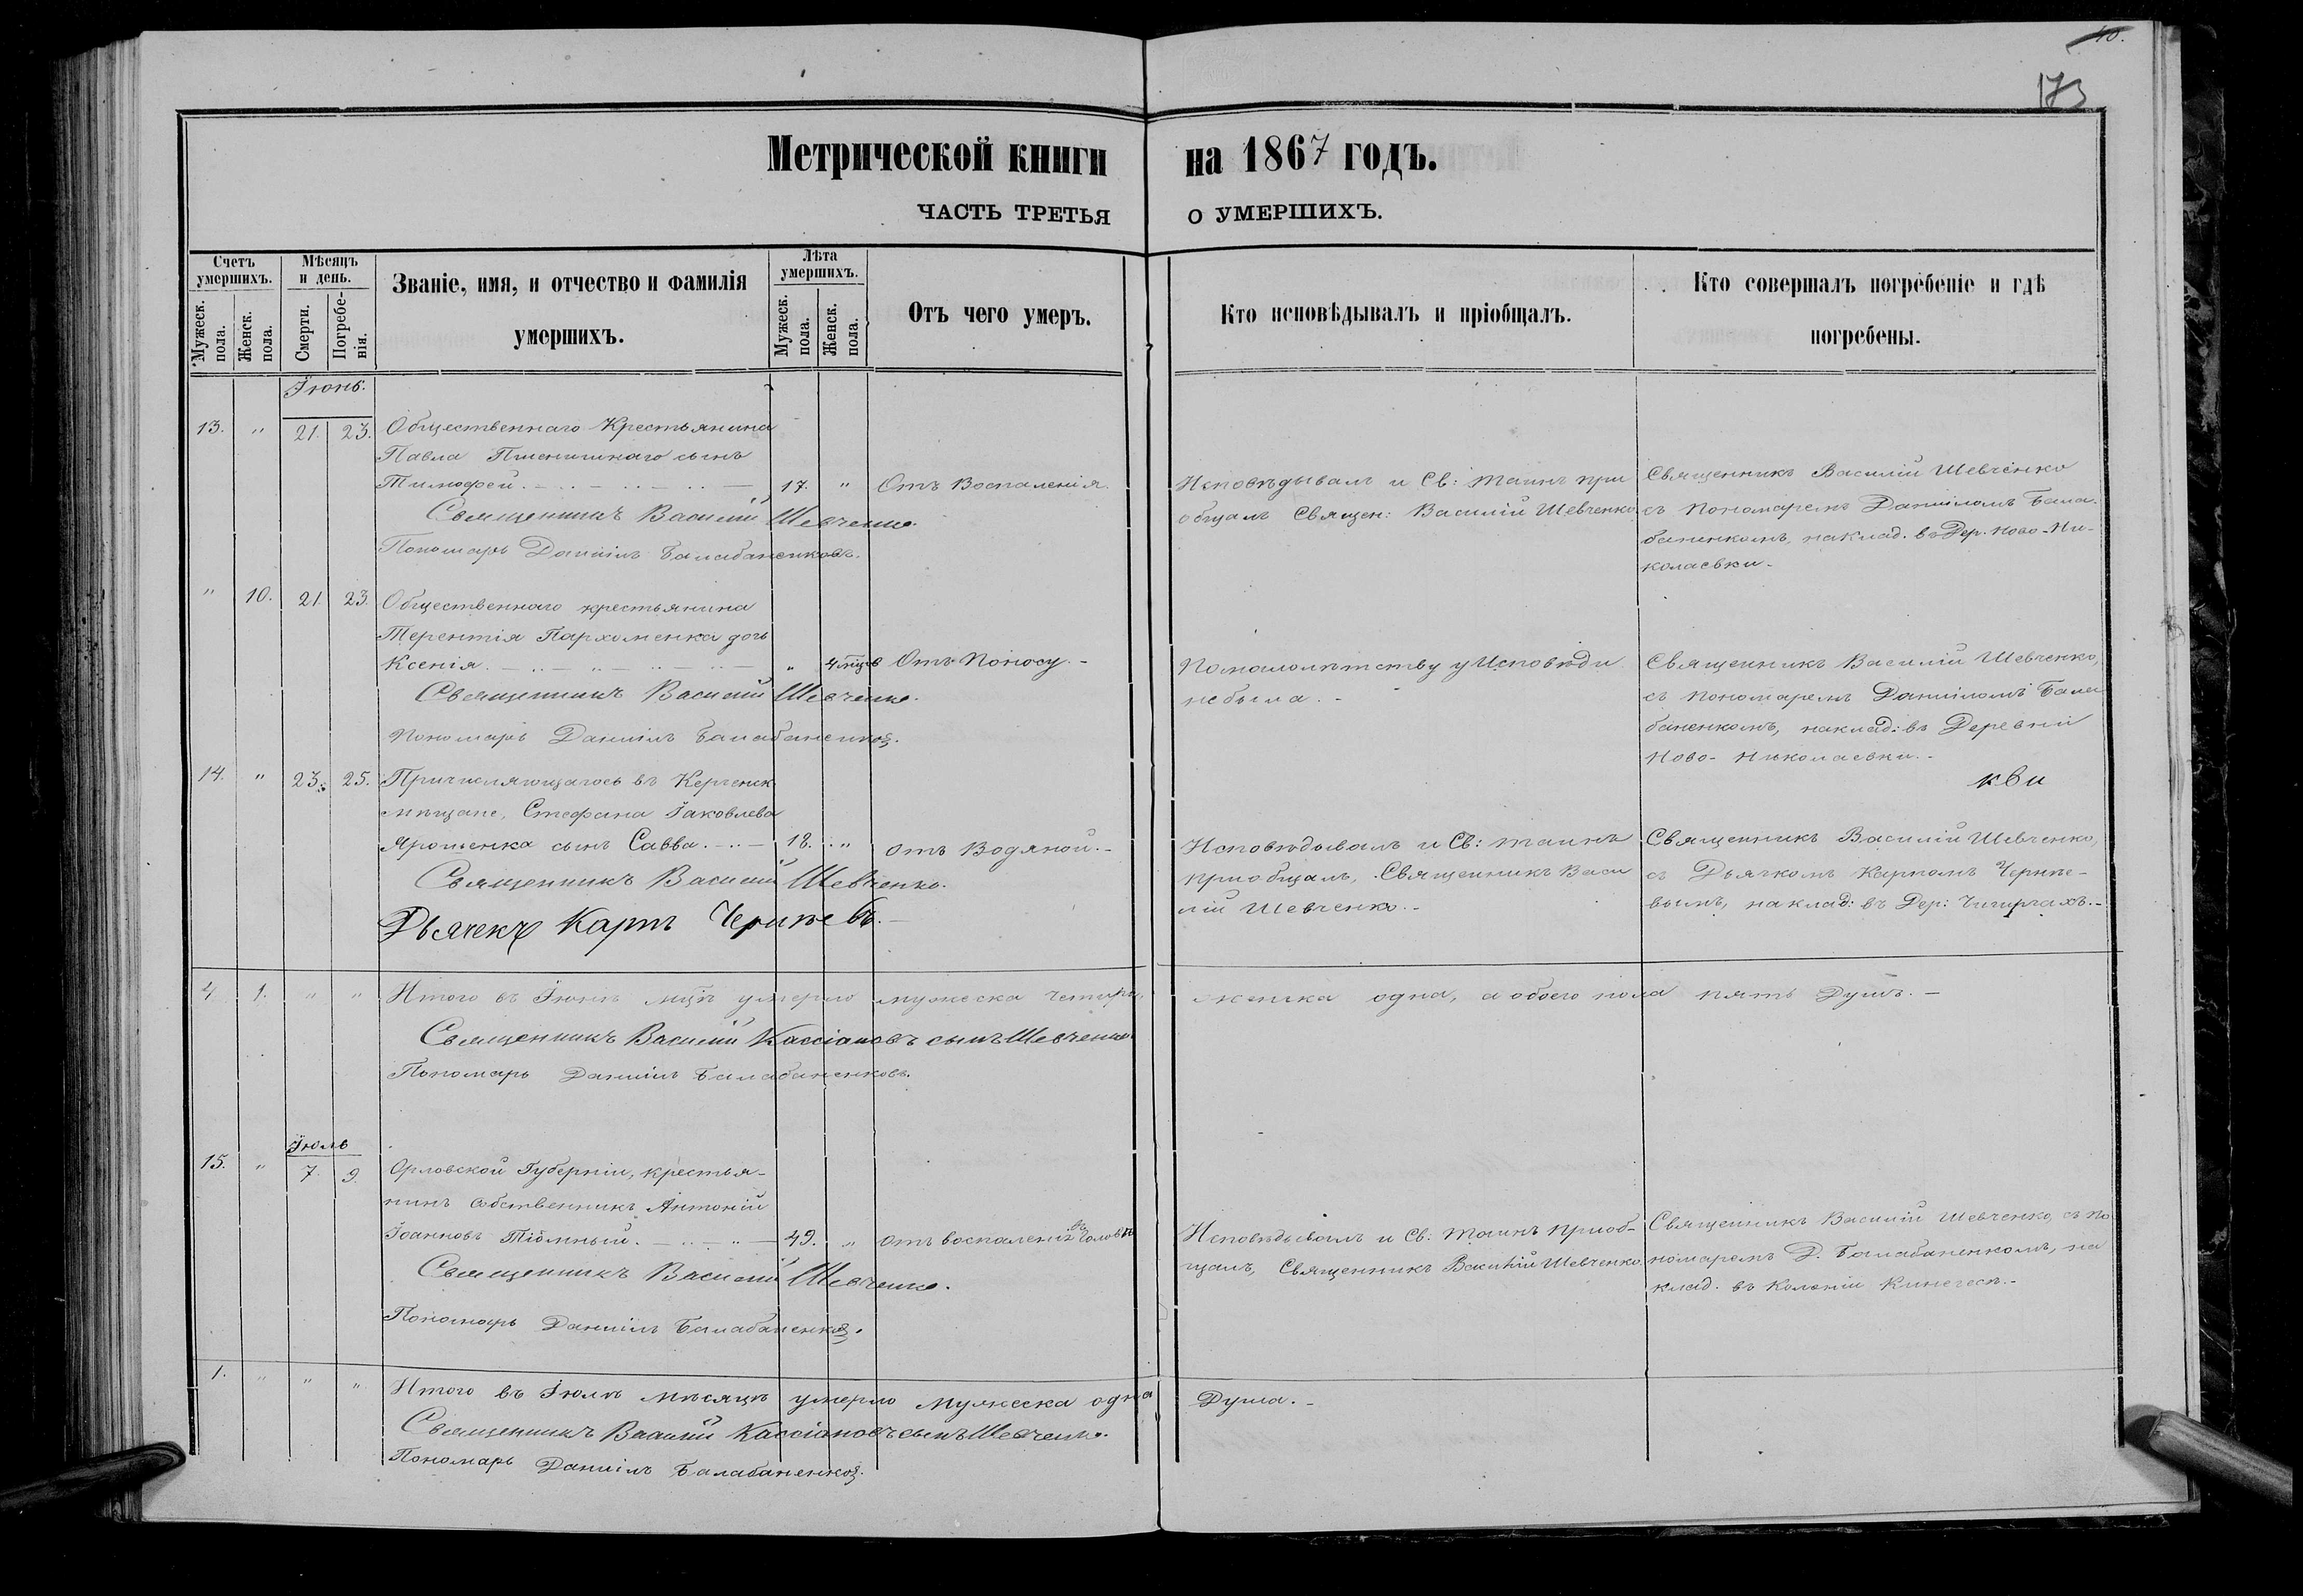 40.
173
Метрической книги на 1867 годъ.
ЧАСТЬ ТРЕТЬЯ О УМЕРШИХЪ.
Счетъ умершихъ.
Мужеск. пола.
Женск. пола.
Мѣсяцъ и день.
Смерти.
Погребе-нія.
Званіе, имя, и отчество и фамилія
умершихъ.
Лѣта умершихъ.
Мужеск. пола.
Женск. пола.
Отъ чего умеръ.
Кто исповѣдывалъ и пріобщалъ.
Кто совершалъ погребеніе и гдѣ
погребены.
Іюнь.
13. " 21. 23. Общественнаго Крестьянина
Павла Пшеничнаго сынъ
Тимофей. 17. " Отъ Воспаленія.
Священникъ Василій Шевченко.
Пономарь Даніилъ Балабаненковъ.
Исповѣдывалъ и Св: таинъ при
общалъ Священ: Василій Шевченко
Священникъ Василій Шевченко
съ Пономаремъ Даніиломъ Бала-
баненкомъ, на клад. въ Дер. Ново-Ни-
колаевки.
" 10. 21 23. Общественнаго крестьянина
Терентія Пархоменка дочь
Ксенія. " 4 мцв Отъ Поносу.
Священникъ Василій Шевченко.
Пономарь Даніилъ Балабаненковъ.
По малолѣтству у Исповѣди
не была.
Священникъ Василій Шевченко,
съ пономаремъ Даніиломъ Бала
баненкомъ, на клад: въ Деревни
Ново-Николаевки.
кви
14. " 23. 25. Причисляющагося въ Керченск
мѣщане, Стефана Іаковлева
Ярошенка сынъ Савва. 18. " отъ Водяной.
Священникъ Василій Шевченко.
Дьячекъ Карпъ Чернѣевъ.
Исповѣдывалъ и Св: таинъ
приобщалъ, Священникъ Васи
лій Шевченко.
Священникъ Василій Шевченко,
съ Дьячкомъ Карпомъ Чернѣе-
вымъ, на клад: въ Дер:
4 1. " " Итого въ Іюнѣ мцѣ умерло мужеска четыре, женска одна, а обоего пола пять Душъ.
Священникъ Василій Кассіановъ сынъ Шевченко
Пономарь Даніилъ Балабаненковъ.
Іюль
15. " 7. 9. Орловской Губерніи, крестья-
нинъ собственникъ Антоній
Іоанновъ Тіомный. 49. " отъ воспаленія въ головѣ
Священникъ Василій Шевченко.
Пономарь Даніилъ Балабаненковъ.
Исповѣдывалъ и Св: Таинъ приоб-
щалъ, Священникъ Василій Шевченко
Священникъ Василій Шевченко, съ по
номаремъ Д. Балабаненкомъ, на
клад. въ Колоніи Кинегесъ.
1. " " " Итого въ Іюлѣ мѣсяцѣ умерло мужеска одна Душа.
Священникъ Василій Кассіановъ сынъ Шевченко.
Пономарь Даніилъ Балабаненковъ.